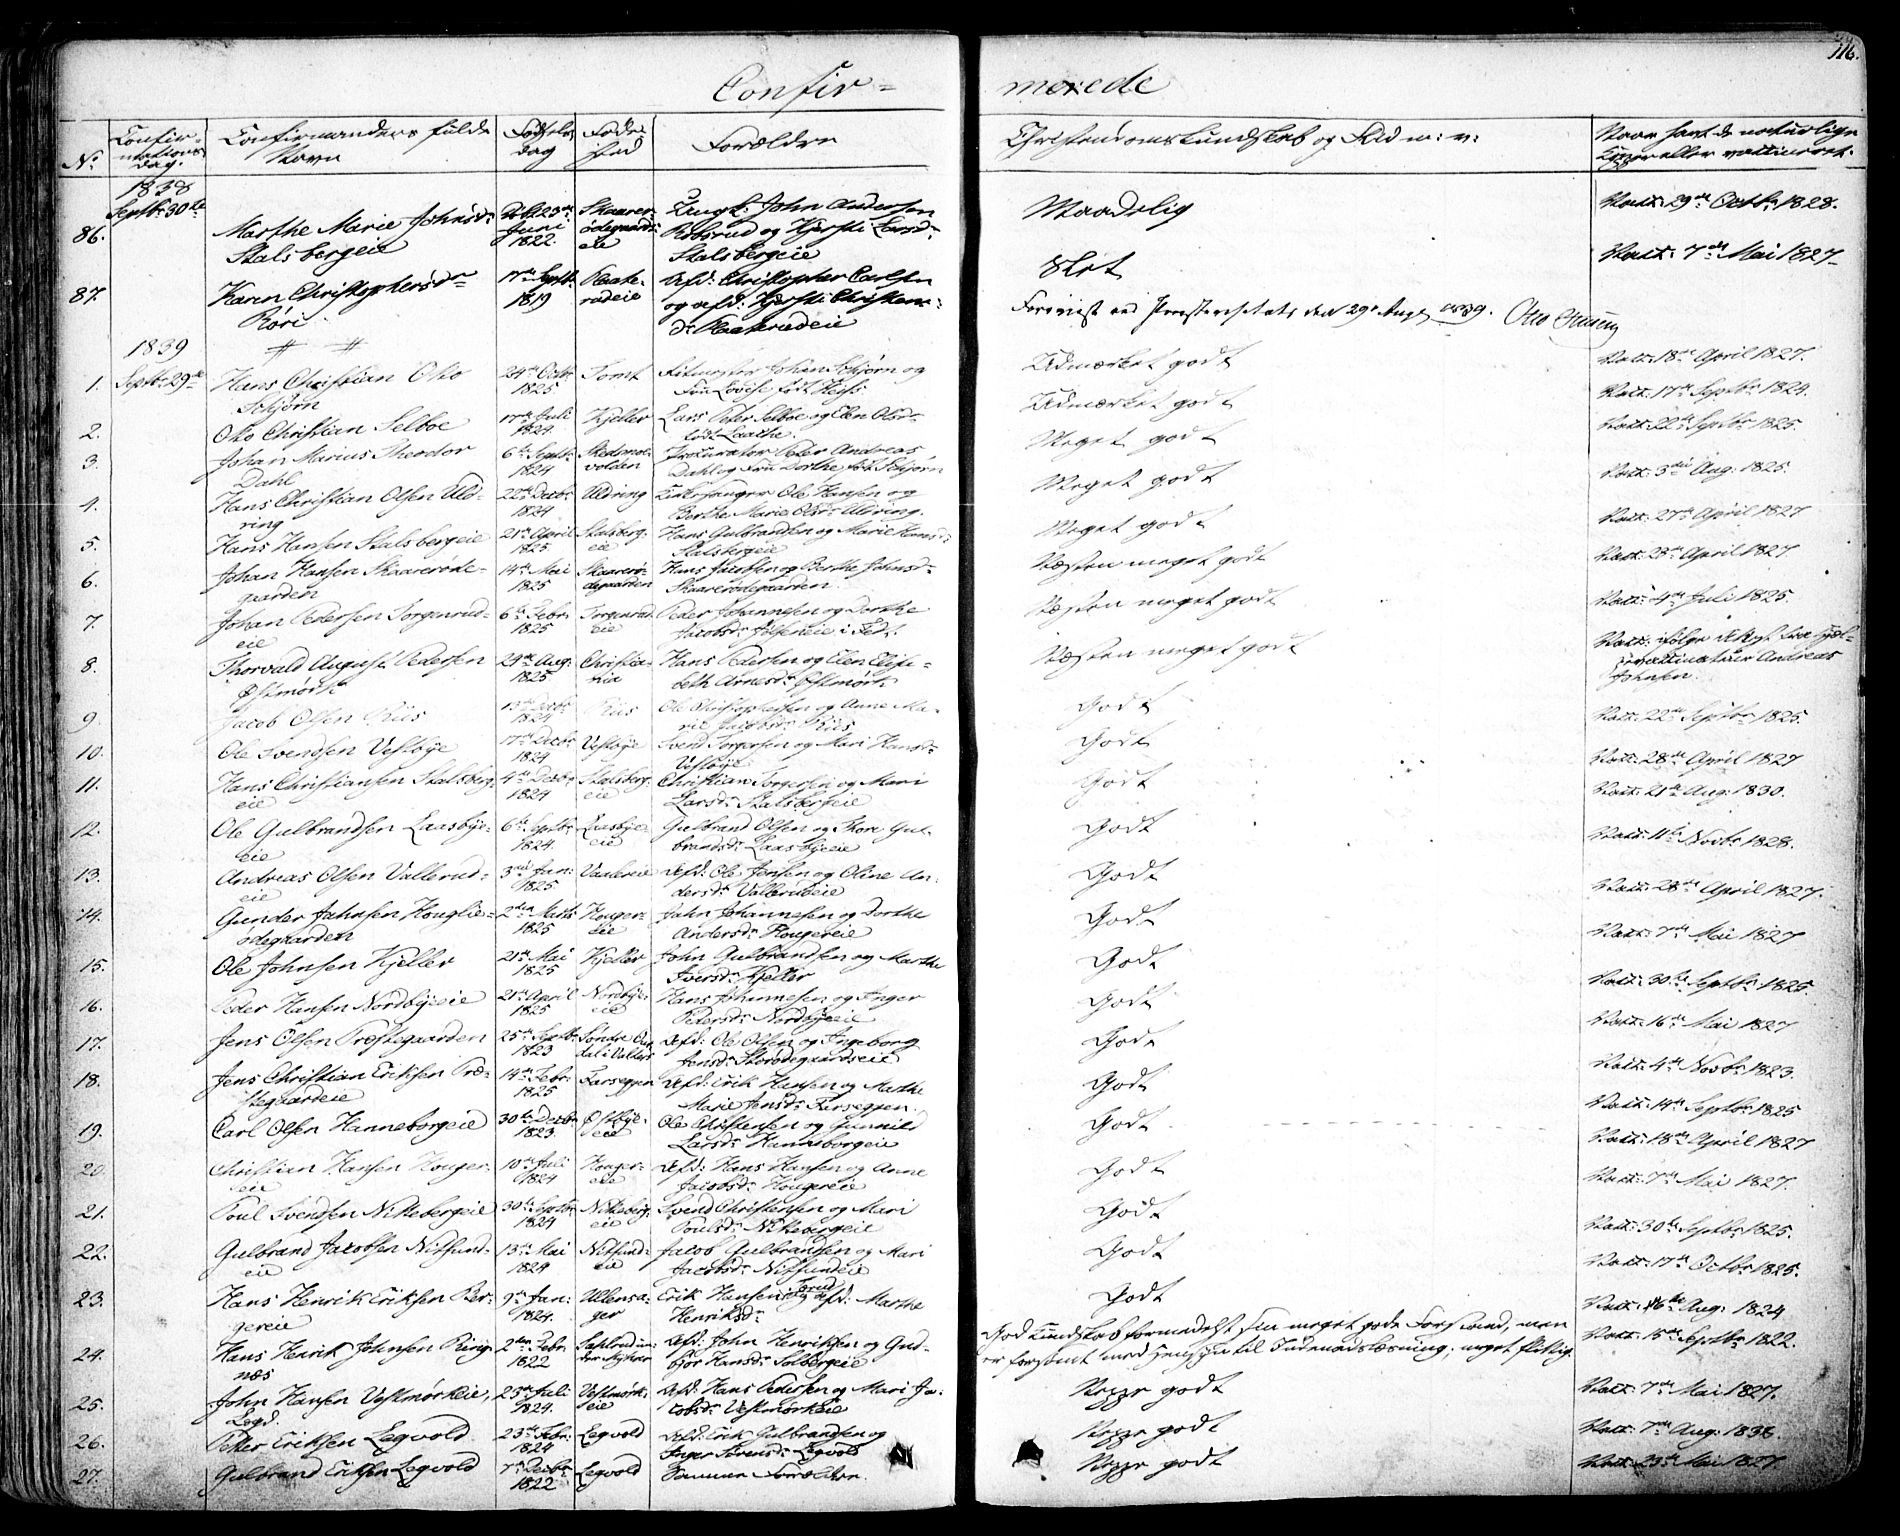 116.
Confir=
merede
No.
Confir-
mations
Dag.
Confirmandens fulde
Navn
Fødsels
dag
Føde
sted
Forældre
Christendomskundskab og Flid m: v:
Naar havt de naturlige
Kopper eller vaccineret.
1838
Septbr 30te
86.
Marthe Marie Johnsdr
Stalsbergeie
Juni
1822
Skaarer-
ødegaards-
eie
Ungk: John Andersen
Robsrud og Kjersti Larsdr
Stalsbergeie
Maadelig
Vacc: 29de Octbr 1828.
87.
Karen Christophersdr
Röri
17de Septbr
1819
Flaate-
rudeie
Afd: Christopher Carlsen
og afd: Kjersti Christens-
dr Flaaterudeie
Slet
Vacc: 7de Mai 1827
1839
Septbr 29de
1.
Hans Christian Otto
Schjørn
24de Octbr
1825
Tomt
Johan Schjørn og
Fru Lovise født Heiss
Udmærket godt
Vacc: 18de April 1827.
2.
Otto Christian Selboe
17de Juli
1824
Kjeller
Lars Peter Selboe og Elen Olsdr
født Laache.
Udmærket godt
Vacc: 17de Septbr 1824.
3.
Johan Marius Theodor
Dahl
6te Septbr
1824
Skedsmo-
volden
Procurator Peter Andreas
Dahl og Fru Dorthe født Schjørn
Meget godt
Vacc: 22de Septbr 1825.
4.
Hans Christian Olsen Uld-
ring
22de Decbr
1824
Uldring
Ole Hansen og
Berthe Marie Olsdr Uldring.
Meget godt
Vacc: 3die Aug: 1825.
5.
Hans Hansen Stalsbergeie
21de April
1825
Stalsberg-
eie
Hans Gulbrandsen og Marie Hansdr
Stalsbergeie
Meget godt
Vacc: 27de April 1827
6.
Johan Hansen Skaarerøde-
gaarden
14de Mai
1825
Skaarerø-
degaarden
Hans Jacobsen og Berthe Johnsdr
Skaarerødegaarden.
Næsten meget godt
Vacc: 23de April 1827
7.
Johan Pedersen Torgenrud-
eie
6te Febr:
1825
Torgenrud
eie
Peder Johannesen og Dorthe
Jacobsdr Jølseneie i Fedt.
Næsten meget godt
Vacc: 4de Juli 1825.
8.
Thorvald August Pedersen
Østmørk
29de Aug:
1825
Christia-
nia
Hans Pedersen og Elen Elisa-
beth Arnesdr Østmørk
Næsten meget godt
Vacc: ifølge
vaccinateur Andreas
Johnsen.
9.
Jacob Olsen Riis
13de Decbr
1824
Riis
Ole Christophersen og Anne Ma-
rie Jacobsdr Riis
Godt
Vacc: 22de Septbr 1825.
10.
Ole Svendsen Vestbye
17de Decbr
1824
Vestbye
Svend Torgersen og Mari Hansdr
Vestbye
Godt
Vacc: 28de April 1827
11.
Hans Christiansen Stalsberg-
eie
4de Decbr
1824
Stalsberg-
eie
Christian Torgersen og Mari
Larsdr Stalsbergeie
Godt
Vacc: 21de Aug: 1830.
12.
Ole Gulbrandsen Laasbye-
eie
6te Septbr
1824
Laasbye-
eie
Gulbrand Olsen og Thore Gul-
brandsdr Laasbyeeie
Godt
Vacc: 11te Novbr 1828.
13.
Andreas Olsen Vallerud-
eie
3die Jan:
1825
Vaalereie
Afd: Ole Jensen og Oline An-
dersdr Vallerudeie
Godt
Vacc: 28de April 1827.
14.
Gunder Jahnsen Houglie-
ødegaarden
2den Marts
1825
Houger-
eie
Jahn Johannesen og Dorthe
Andersdr Hougereie
Godt
Vacc: 7de Mai 1827
15.
Ole Johnsen Kjeller
21de Mai
1825
Kjeller
John Gulbrandsen og Marthe
Iversdr Kjeller
Godt
Vacc: 30te Septbr 1825.
16.
Peder Hansen Nordbyeeie
21de April
1825
Nordbye-
eie
Hans Johannesen og Inger
Pedersdr Nordbyeeie
Godt
Vacc: 16de Mai 1827
17.
Jens Olsen Præstegaarden
25de Septbr
1823
Søndre
Afd: Ole Olsen og Ingeborg
Jensdr Storødegaardseie
Godt
Vacc: 4de Novbr 1823.
18.
Jens Christian Eriksen Præ-
stegaardeie
14de Febr:
1825
Farseggen
Afd: Erik Hansen og Marthe
Marie Jensdr Farseggen.
Godt
Vacc: 14de Septbr 1825
19.
Carl Olsen Hanneborgeie
30te Decbr
1823.
Østbye-
eie
Ole Christensen og Gunnild
Larsdr Hanneborgeie
Godt
Vacc: 18de April 1827
20
Christian Hansen Houger-
eie
10de Juli
1824
Houger-
eie
Afd: Hans Hansen og Anne
Jacobsdr Hougereie
Godt
Vacc: 7de Mai 1827.
21.
Poul Svendsen Nikebergeie
30te Septbr
1824
Nikeberg-
eie
Svend Christensen og Mari
Poulsdr Nikebergeie
Godt
Vacc: 30te Septbr 1825.
22.
Gulbrand Jacobsen Nitsund-
eie
13de Mai
1824
Nitsund-
eie
Jacob Gulbrandsen og Mari
Jacobsdr Nitsundeie
Godt
Vacc: 17de Octbr 1825.
23.
Hans Henrik Eriksen Ber-
gereie
9de Jan:
1824.
Ullensa-
ger
Erik Hansen og afd: Marthe
Henriksdr
Godt
Vacc: 16de Aug: 1824
24.
Hans Henrik Johnsen Ring-
næs
2den Febr:
1822
Afd: John Henriksen og Gud-
bjør Hansdr Solbergeie
God Kundskab formedelst sin meget gode Forstand, men
er forsømt med Hensyn til Indenadslæsning; meget flittig.
Vacc: 15de Septbr 1822.
25.
John Hansen Vestmørkeie,
Legd.
23de Juli
1824.
Vestmørk-
eie
Afd: Hans Pedersen og Mari Ja-
cobsdr Vestmørkeie
Neppe godt
Vacc: 7de Mai 1827.
26.
Petter Eriksen Legvold
23de Febr:
1824
Legvold
Afd: Erik Gulbrandsen og
Inger Sørensdr Legvold
Neppe godt
Vacc: 7de Aug: 1836.
27.
Gulbrand Eriksen Legvold
7de Decbr
1822
Legvold
Samme Forældre.
Neppe godt
Vacc: 23de Mai 1827